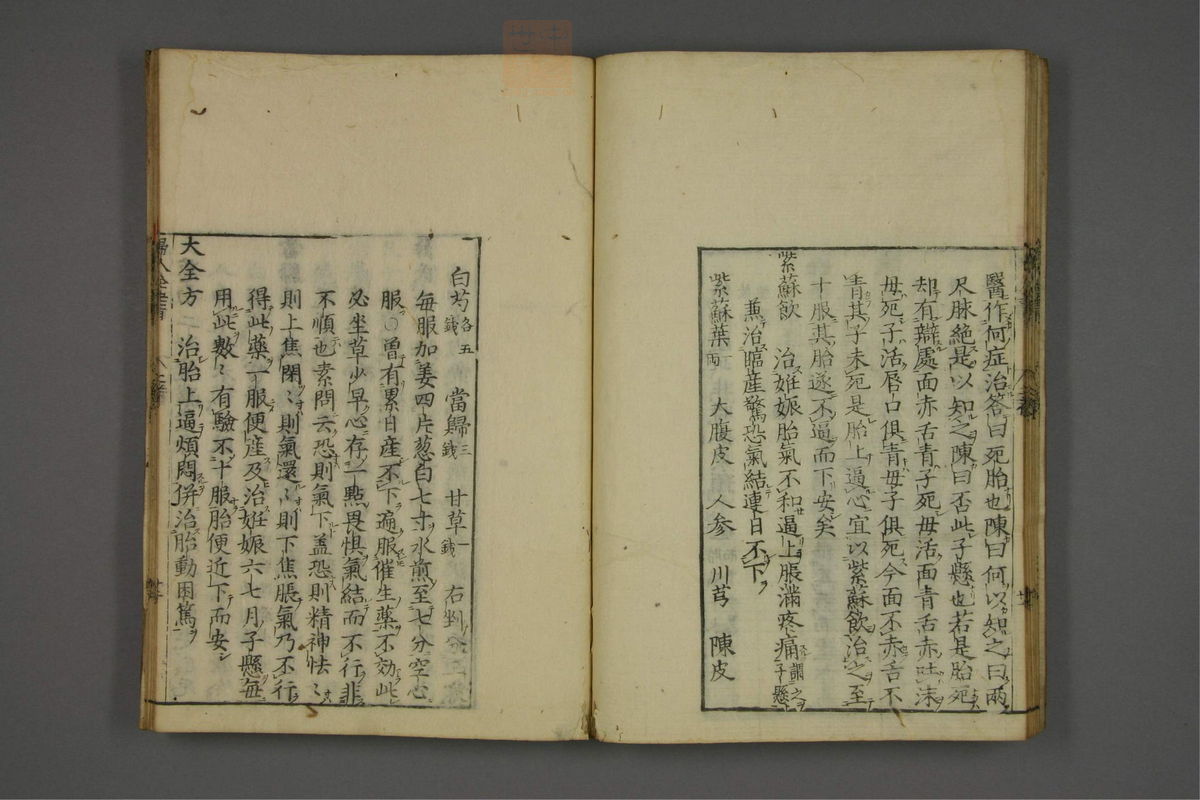 醫作何症治答曰死胎也陳曰何以知之曰兩
尺脉絶是以知之陳曰否此子懸也若是胎死
却有辯處面赤舌青子死母活面青舌赤吐沫
母死子活唇口俱青母子俱死今面不赤舌不
青其子未死是胎上逼心宜以紫蘇飲治之至
十服其胎遂不逼而下安矣
紫蘇飲 治姙娠胎氣不和逼上脹滿疼痛謂之子懸
兼治臨産驚恐氣結連日不下
紫蘇葉兩一 大腹皮 人参 川芎 陳皮
白芍各五錢 當歸三錢 甘草一錢 右剉分三
每服加姜四片葱白七寸水煎至七分空心
服○曽有累日産不下遍服催生藥不効此
必坐草少早心存一點畏惧氣結而不行非
不順也素問云恐則氣下盖恐則精神怯〻
則上焦閉〻則氣還〻則下焦脹氣乃不行
得此藥一服便産及治姙娠六七月子懸每
用此數〻有驗不十服胎便近下而安
大全方二治胎上逼煩悶併治胎動困篤